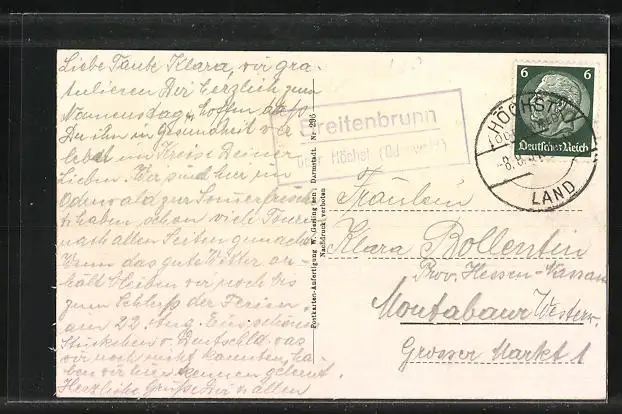 Liebe Tante Klara, wir gra-
tulieren Dir herzlich zum
Namenstag, hoffen daß
Du ihn in Gesundheit ver
lebst im Kreise Deiner
Lieben. Wir sind hier im
Odenwald zur Sommerfrische
haben schon viele Touren
nach allen Seiten gemacht.
Wenn das gute Wetter an-
hält bleiben wir noch bis
zum Schluß der Ferien
am 22. Aug. Ein schönes
Stückchen v. Deutschld. das
wir noch nicht kannten, ha-
ben wir hier kennen gelernt.
Herzliche Grüße Dir u. allen
Postkarten-Anfertigung W. Gerling sen., Darmstadt. Nr. 295
Nachdruck verboten
Breitenbrunn
über Höchst (Odenwald)
6 6
Deutsches Reich
HÖCHST
(ODENWALD)
-8.8.
LAND
Fräulein
Klara Bollentin
Prov. Hessen-Nassau
Montabaur Westerw.
Grosser Markt 1